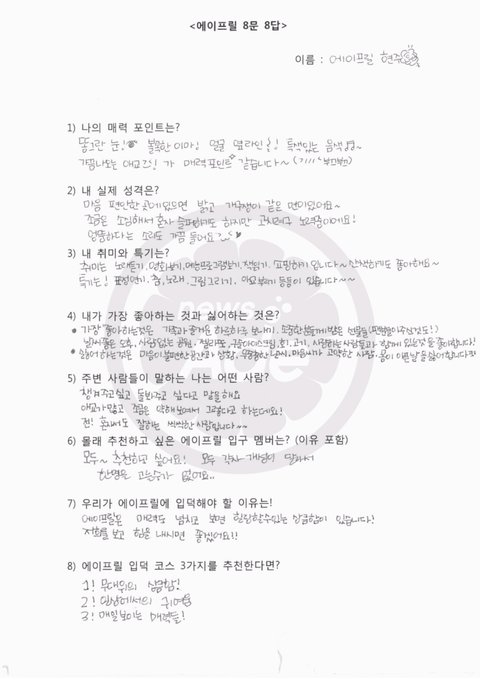 <에이프릴 8문 8답>
이름 : 에이프릴 현주
1) 나의 매력 포인트는?
똥그란 눈! 볼록한 이마! 얼굴 옆라인! 특색있는 음색~
가끔나오는 애교 가 매력포인트 같습니다~
2) 내 실제 성격은?
마음 편안한 곳에있으면 밝고 개구쟁이 같은 면이있어요~
조금은 소심해서 혼자 슬퍼하기도 하지만 고치려구 노력중이에요!
엉뚱하다는 소리도 가끔 들어요
3) 내 취미와 특기는?
취미는 노래듣기, 영화보기, 책읽기, 쇼핑하기 입니다~ 산책하기도 좋아해요~
특기는! 표정연기, 춤, 노래, 그림그리기, 등등이 있습니다~~
4) 내가 가장 좋아하는 것과 싫어하는 것은?
가장 좋아하는것은 가족과 즐거운 하루하루 보내기, 소중한 분들께 받은 선물들
날씨좋은 오후, 사람없는 공원, 젤라또, 아이스크림, 회, 고기, 사랑하는 사람들과 함께 있는것을 좋아합니다!
싫어하는것은 마음이 불편한 공간과 상황, 우중충한 날씨, 마음씨가 고약한 사람, 몸이 아픈 날을 싫어합니다
5) 주변 사람들이 말하는 나는 어떤 사람?
챙겨주고싶고 돌봐주고 싶다고 말을해요
애교가많고 조금은 약해보여서 그렇다고 하는데요!
전! 혼자서도 잘하는 씩씩한 사람입니다~~
6) 몰래 추천하고 싶은 에이프릴 입구 멤버는? (이유 포함)
모두~ 추천하고 싶어요! 모두 각자 개성이 달라서
한명은 고를수가 없어요..
7) 우리가 에이프릴에 입덕해야 할 이유는!
에이프릴은 매력도 넘치고 보면 힐링할수있는 상큼함이 있습니다!
저희를 보고 힘을 내시면 좋겠어요!!
8) 에이프릴 입덕 코스 3가지를 추천한다면?
1! 무대위의 상큼함!
2! 일상에서의 귀여움
3! 매일보이는 매력들!
news